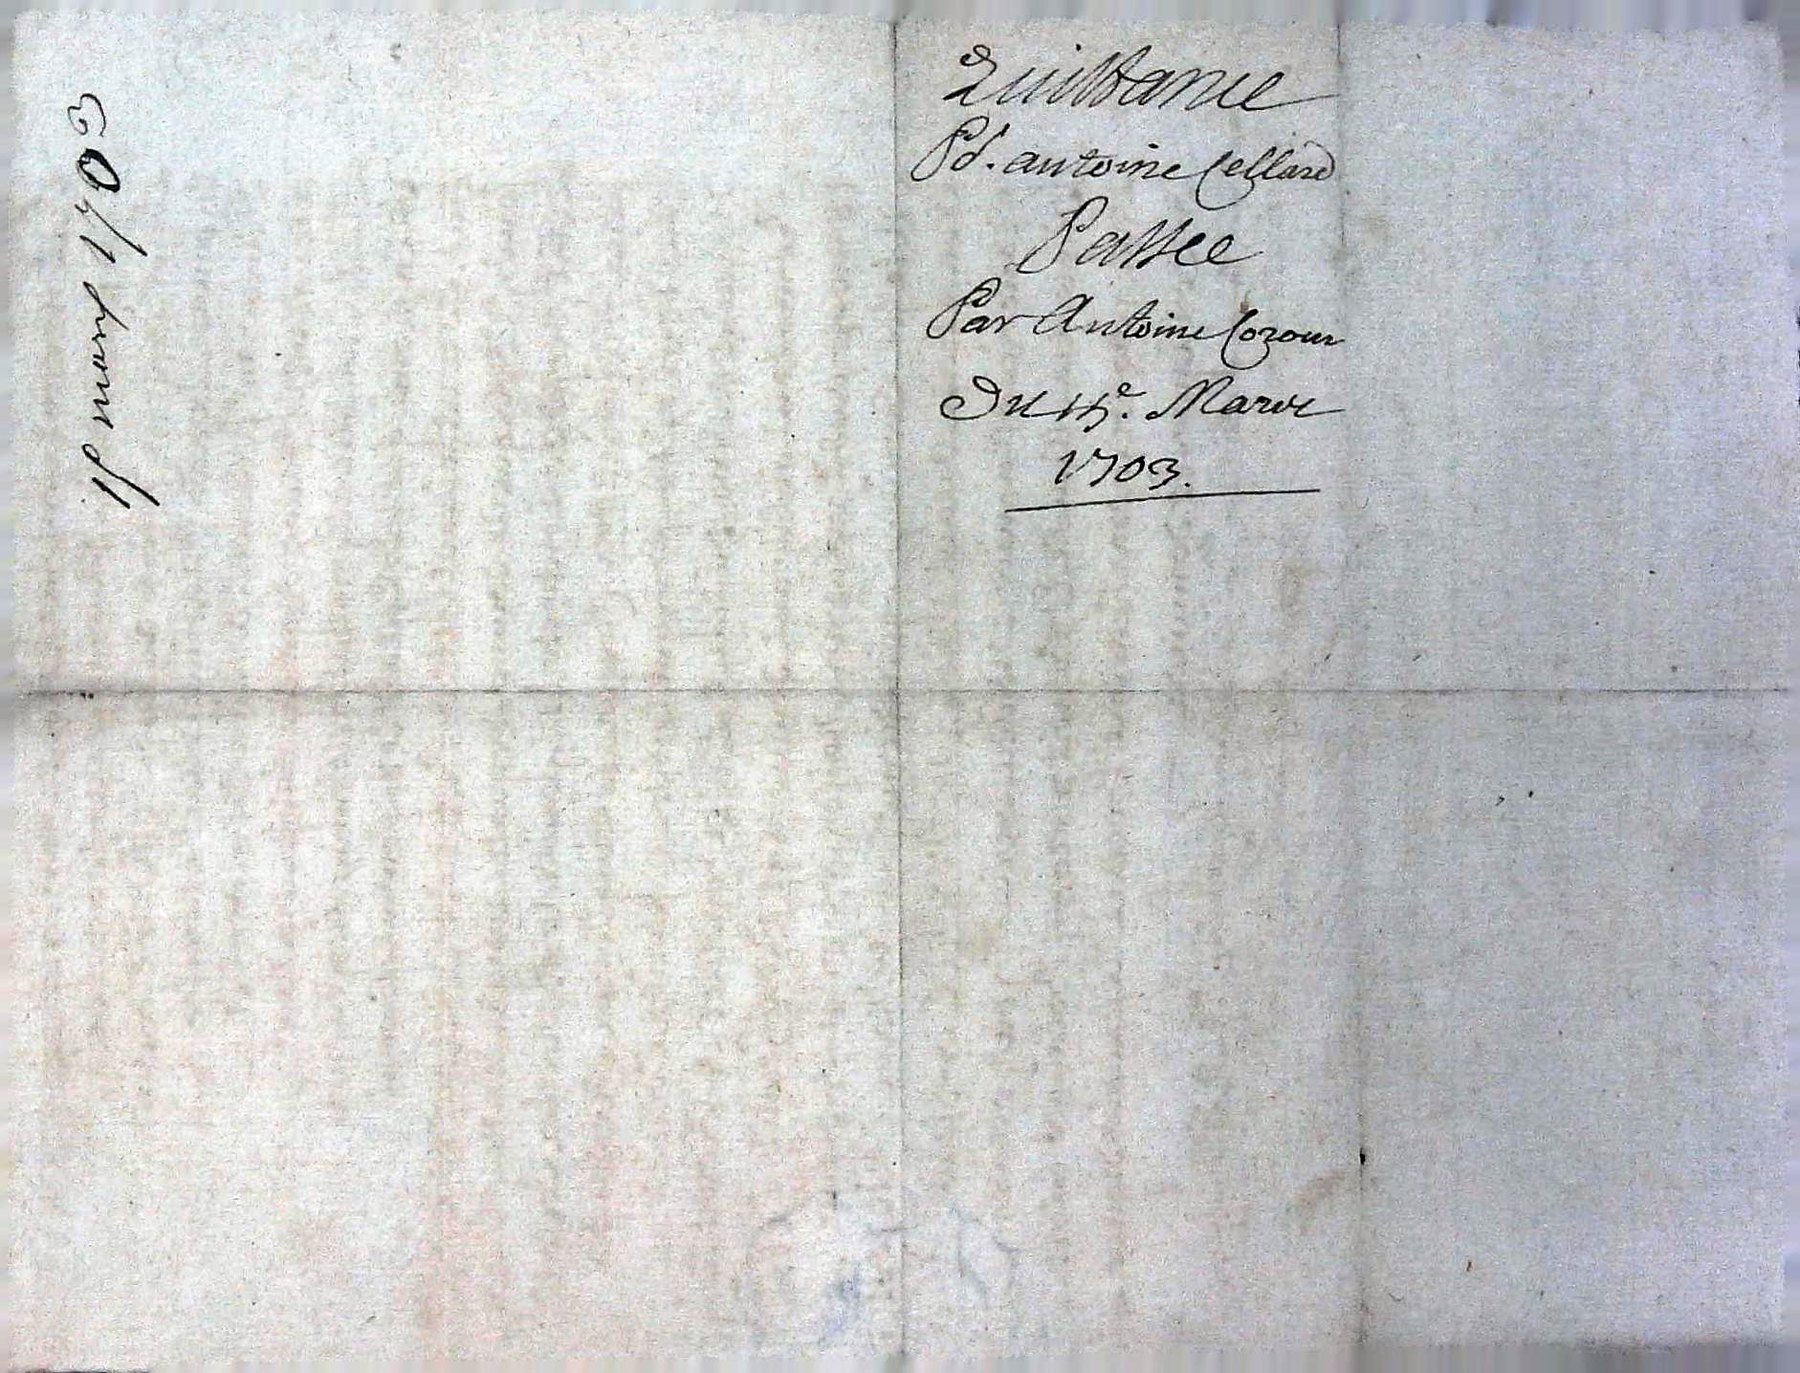 Quittance
Pd. antoine Cellard
Passee
Par Antoine Cozour
Du 15e. Mars
1703.
15 mars 1703